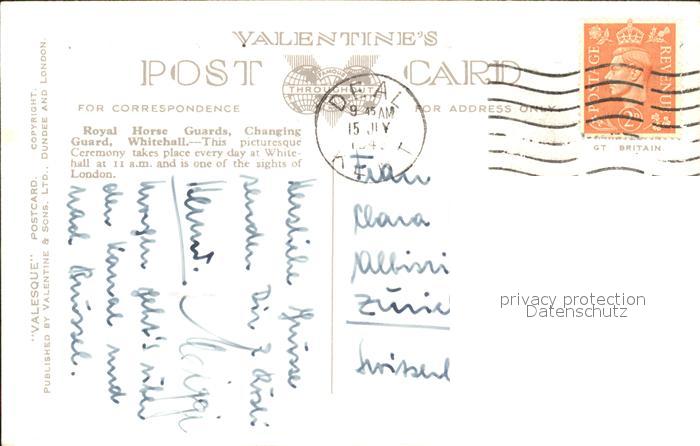 VALENTINE'S
POST CARD
FAMOUS
THROUGHOUT
FOR CORRESPONDENCE
FOR ADDRESS ONLY
Royal Horse Guards, Changing
Guard, Whitehall.—This picturesque
Ceremony takes place every day at White-
hall at 11 a.m. and is one of the sights of
London.
"VALESQUE" POSTCARD. COPYRIGHT.
PUBLISHED BY VALENTINE & SONS, LTD., DUNDEE AND LONDON.
DEAL
9 45 AM
15 JLY
POSTAGE REVENUE
2D
GT BRITAIN.
Herzliche Grüsse
senden Dir
morgen geht's über
den Kanal und
nach Brüssel.
Frau
Clara
Zürich
privacy protection
Datenschutz